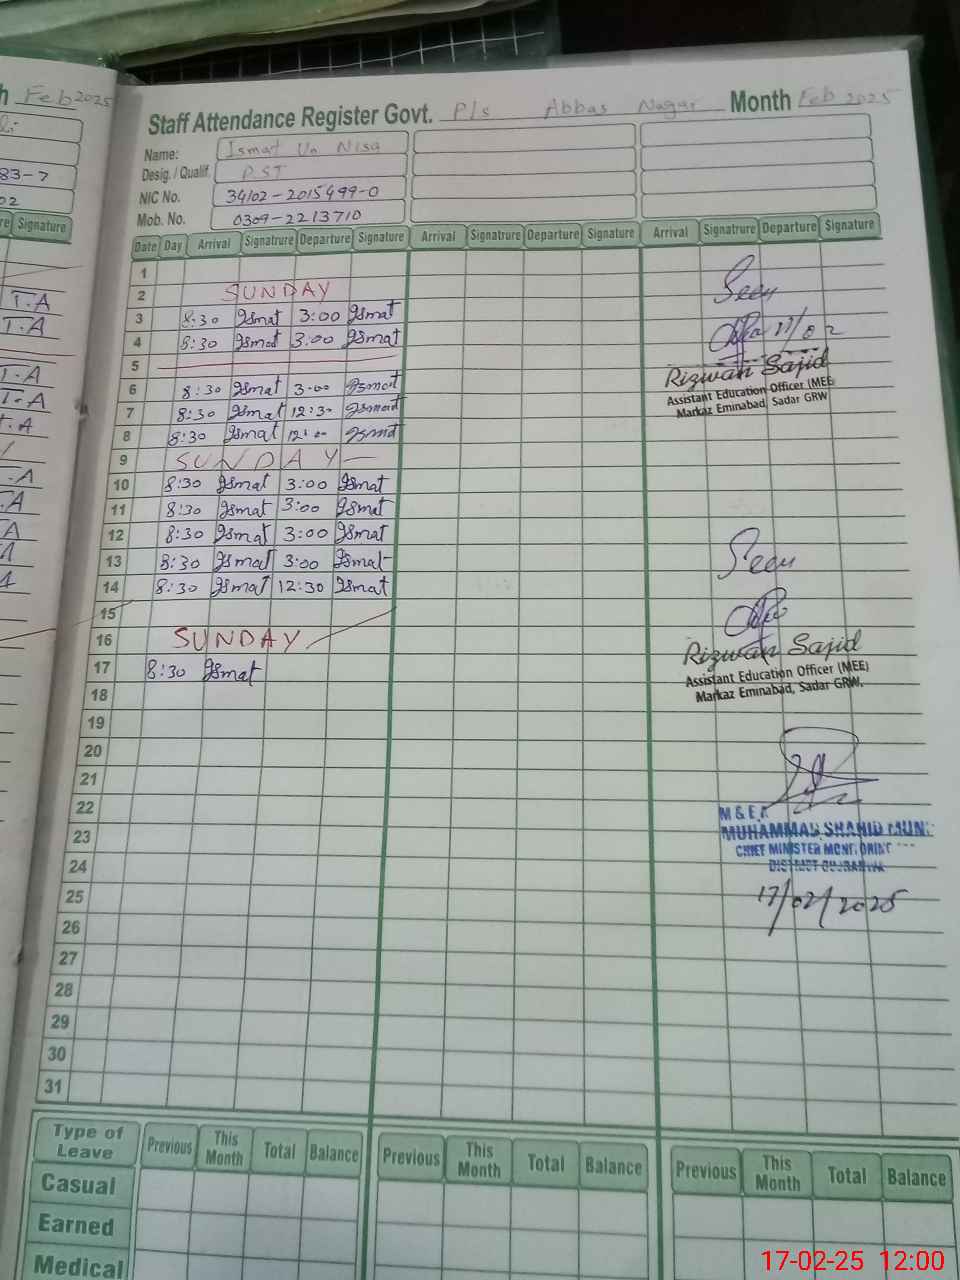 Feb 2025
83-7
02
Signature
T.A
T.A
T.A
T.A
Staff Attendance Register Govt. P/s Abbas Nagar Month Feb 2025
Name: Ismat Un Nisa
Desig. / Qualif. P.ST
NIC No. 34102-2015499-0
Mob. No. 0309-2213710
Date Day Arrival Signatrure Departure Signature Arrival Signatrure Departure Signature Arrival Signatrure Departure Signature
1
2 SUNDAY
3 8:30 Ismat 3:00 Ismat
4 8:30 Ismat 3:00 Ismat
5
6 8:30 Ismat 3:00 Ismat
7 8:30 Ismat 12:30 Ismat
8 8:30 Ismat 12:00 Ismat
9 SUNDAY
10 8:30 Ismat 3:00 Ismat
11 8:30 Ismat 3:00 Ismat
12 8:30 Ismat 3:00 Ismat
13 8:30 Ismat 3:00 Ismat
14 8:30 Ismat 12:30 Ismat
15
16 SUNDAY
17 8:30 Ismat
18
19
20
21
22
23
24
25
26
27
28
29
30
31
Seen
Rizwan Sajid
Assistant Education Officer (MEE
Markaz Eminabad, Sadar GRW
Seen
Rizwan Sajid
Assistant Education Officer (MEE)
Markaz Eminabad, Sadar GRW.
M & E.A
MUHAMMAD SHAHID
CHIEF MINISTER
DISTRICT
17/02/2025
Type of Leave Previous This Month Total Balance Previous This Month Total Balance Previous This Month Total Balance
Casual
Earned
Medical
17-02-25 12:00